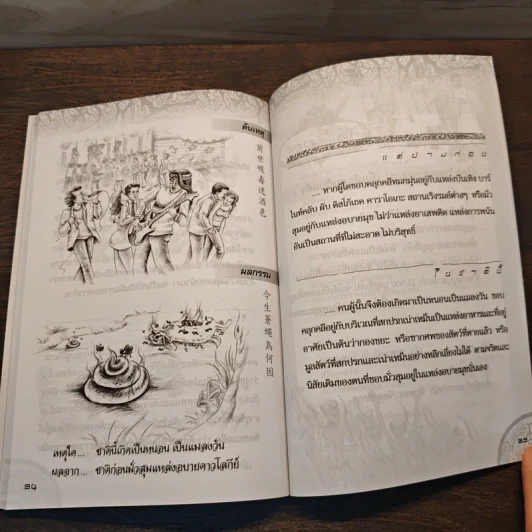 ต้นเหตุ
前世吸毒迷酒色
ผลกรรม
今生蒼蠅為何因
เหตุใด... ชาตินี้เกิดเป็นหนอน เป็นแมลงวัน
ผลจาก... ชาติก่อนมั่วสุมแหล่งอบายดาวโลกีย์
๓๔
แต่ปางก่อน
... หากผู้ใดชอบคลุกคลีหมกมุ่นอยู่กับแหล่งบันเทิง บาร์
ไนท์คลับ ผับ ดิสโก้เธค คาราโอเกะ สถานเริงรมย์ต่างๆ หรือมั่ว
สุมอยู่กับแหล่งอบายมุข ไม่ว่าแหล่งยาเสพติด แหล่งการพนัน
อันเป็นสถานที่ที่ไม่สะอาด ไม่บริสุทธิ์
ในชาตินี้
... คนผู้นั้นจึงต้องเกิดมาเป็นหนอนเป็นแมลงวัน ชอบ
คลุกคลีอยู่กับบริเวณที่สกปรกเน่าเหม็นเป็นแหล่งอาหารและที่อยู่
อาศัยเป็นต้นว่ากองขยะ หรือซากศพของสัตว์ที่ตายแล้ว หรือ
มูลสัตว์ที่สกปรกและเน่าเหม็นอย่างหลีกเลี่ยงไม่ได้ ตามจริตและ
นิสัยเดิมของตนที่ชอบมั่วสุมอยู่ในแหล่งอบายมุขนั่นเอง
๓๕